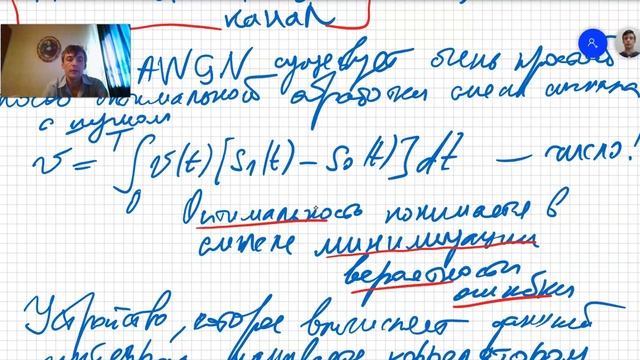 канал
AWGN существует очень простой
способ оптимальной обработки смеси сигнала
с шумом
v = ∫₀ᵀ v(t)[s₁(t) − s₀(t)]dt — число!
Оптимальность понимается в
смысле минимизации
вероятности
ошибки
Устройство, которое вычисляет данный
интеграл, называется коррелятором